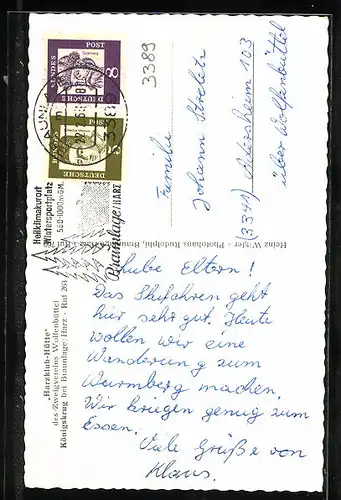 3389
DEUTSCHE
BUNDESPOST
8
DEUTSCHE
BUNDESPOST
3389
Heilklimakurort
Wintersportplatz
560-1000m ü.M.
Braunlage/HARZ
Familie
Johann
(3341)
103
über Wolfenbüttel
Heinz Photohaus Rudolphi,
Liebe Eltern!
Das Skifahren geht
hier sehr gut. Heute
wollen wir eine
Wanderung zum
Wurmberg machen.
Wir kriegen genug zum
Essen.
Viele Grüße von
Klaus.
„Harzklub-Hütte“
des Zweigvereins Wolfenbüttel
Königskrug bei Braunlage/Harz - Ruf 263